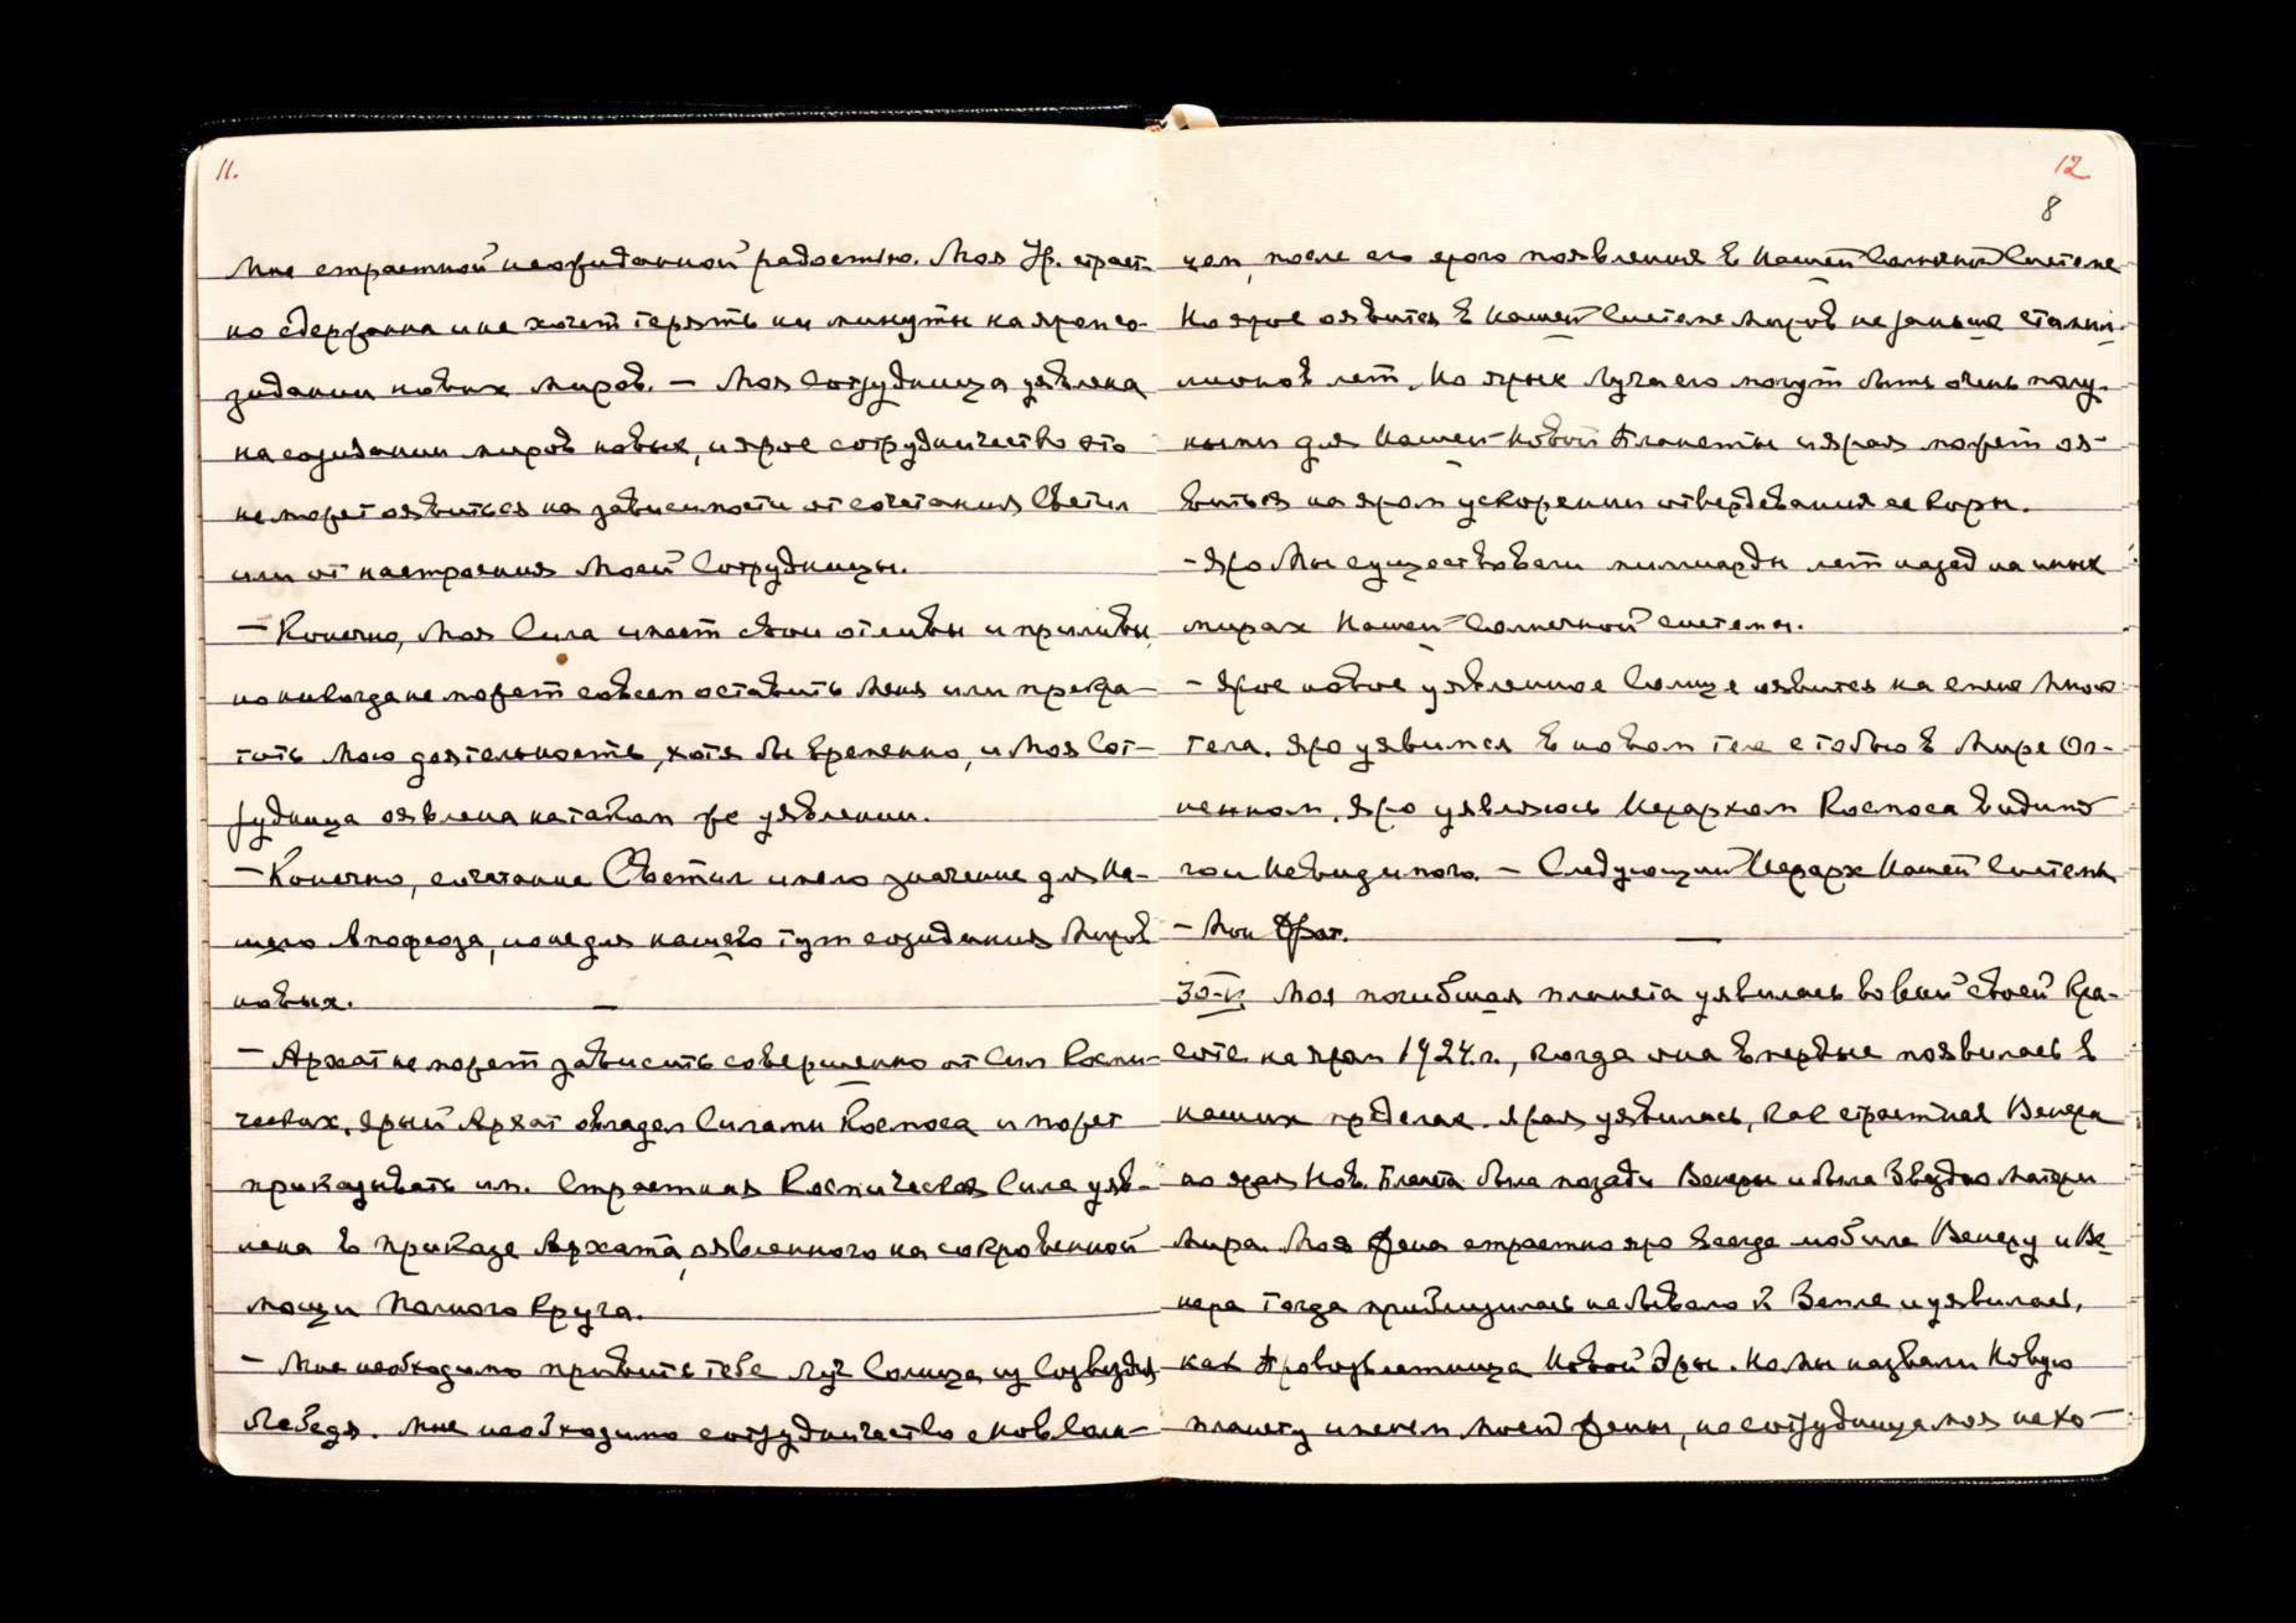 11.
Мне страстной неожиданной радостью. Моя Ур. страст-
но сдержанна и не хочет терять ни минуты на яром со-
зидании новых миров. – Моя Сотрудница уявлена
на созидании миров новых, и ярое сотрудничество это
не может оявиться на зависимости от сочетания Светил
или от настроения Моей Сотрудницы.
– Конечно, Моя Сила имеет свои отливы и приливы,
но никогда не может совсем оставить Меня или прекра-
тить Мою деятельность, хотя бы временно, и Моя Сот-
рудница оявлена на таком же уявлении.
– Конечно, сочетание Светил имело значение для На-
шего Апофеоза, но не для нашего тут созидания Миров
новых.
– Архат не может зависеть совершенно от Сил Косми-
ческих, ярый Архат овладел Силами Космоса и может
приказывать им. Страстная Космическая Сила уяв-
лена в приказе Архата, оявленного на сокровенной
мощи Полного Круга.
– Мне необходимо привить тебе Луч Солнца из Созвездия
Лебедя. Мне необходимо сотрудничество с Нов. Солн-
12
8
цем, после его ярого появления в Нашей Солнечной Системе
Но ярое оявится в Нашей Системе Миров не раньше ста мил-
лионов лет. Но ярые Лучи его могут быть очень нару-
ными для Нашей Новой Планеты и ярая может оя-
виться на яром ускорении отвердевания ее коры.
– Яро Мы существовали миллиарды лет назад на иных
мирах Нашей Солнечной системы.
– Ярое новое уявленное Солнце оявится на смене Моего
тела. Яро уявимся в новом теле с тобою в Мире Ог-
ненном. Яро уявляюсь Иерархом Космоса Видимо-
го и Невидимого. – Следующий Иерарх Нашей Системы
– Мой Брат.
30-V. Моя погибшая планета уявилась во всей своей Кра-
соте на яром 1924 г., когда она впервые появилась в
наших пределах. Ярая уявилась, как страстная Венера
но ярая Нов. Планета была позади Венеры и была Звездою Матери
Мира. Моя Жена страстно яро всегда любила Венеру и Ве-
нера тогда приблизилась небывало к Земле и уявилась,
как Провозвестница Новой Эры. Но мы назвали Новую
планету именем Моей Жены, но сотрудница моя не хо-